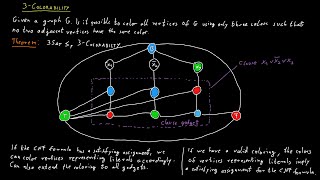 3-Colorability
Given a graph G. Is it possible to color all vertices of G using only three colors such that
no two adjacent vertices have the same color.
Theorem: 3SAT ≤p 3-Colorability
B
Clause
clause gadget
T
F
If the CNF formula has a satisfying assignment, we
can color vertices representing literals accordingly.
Can also extend the coloring to all gadgets.
If we have a valid coloring, the colors
of vertices representing literals imply
a satisfying assignment for the CNF formula.